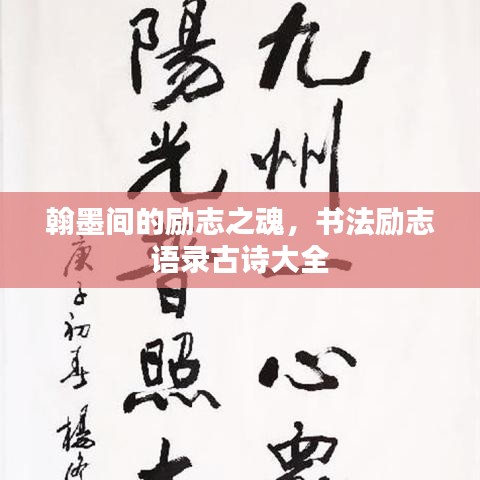 九州一心
陽光普照
庚子初春 楊
翰墨间的励志之魂，书法励志
语录古诗大全